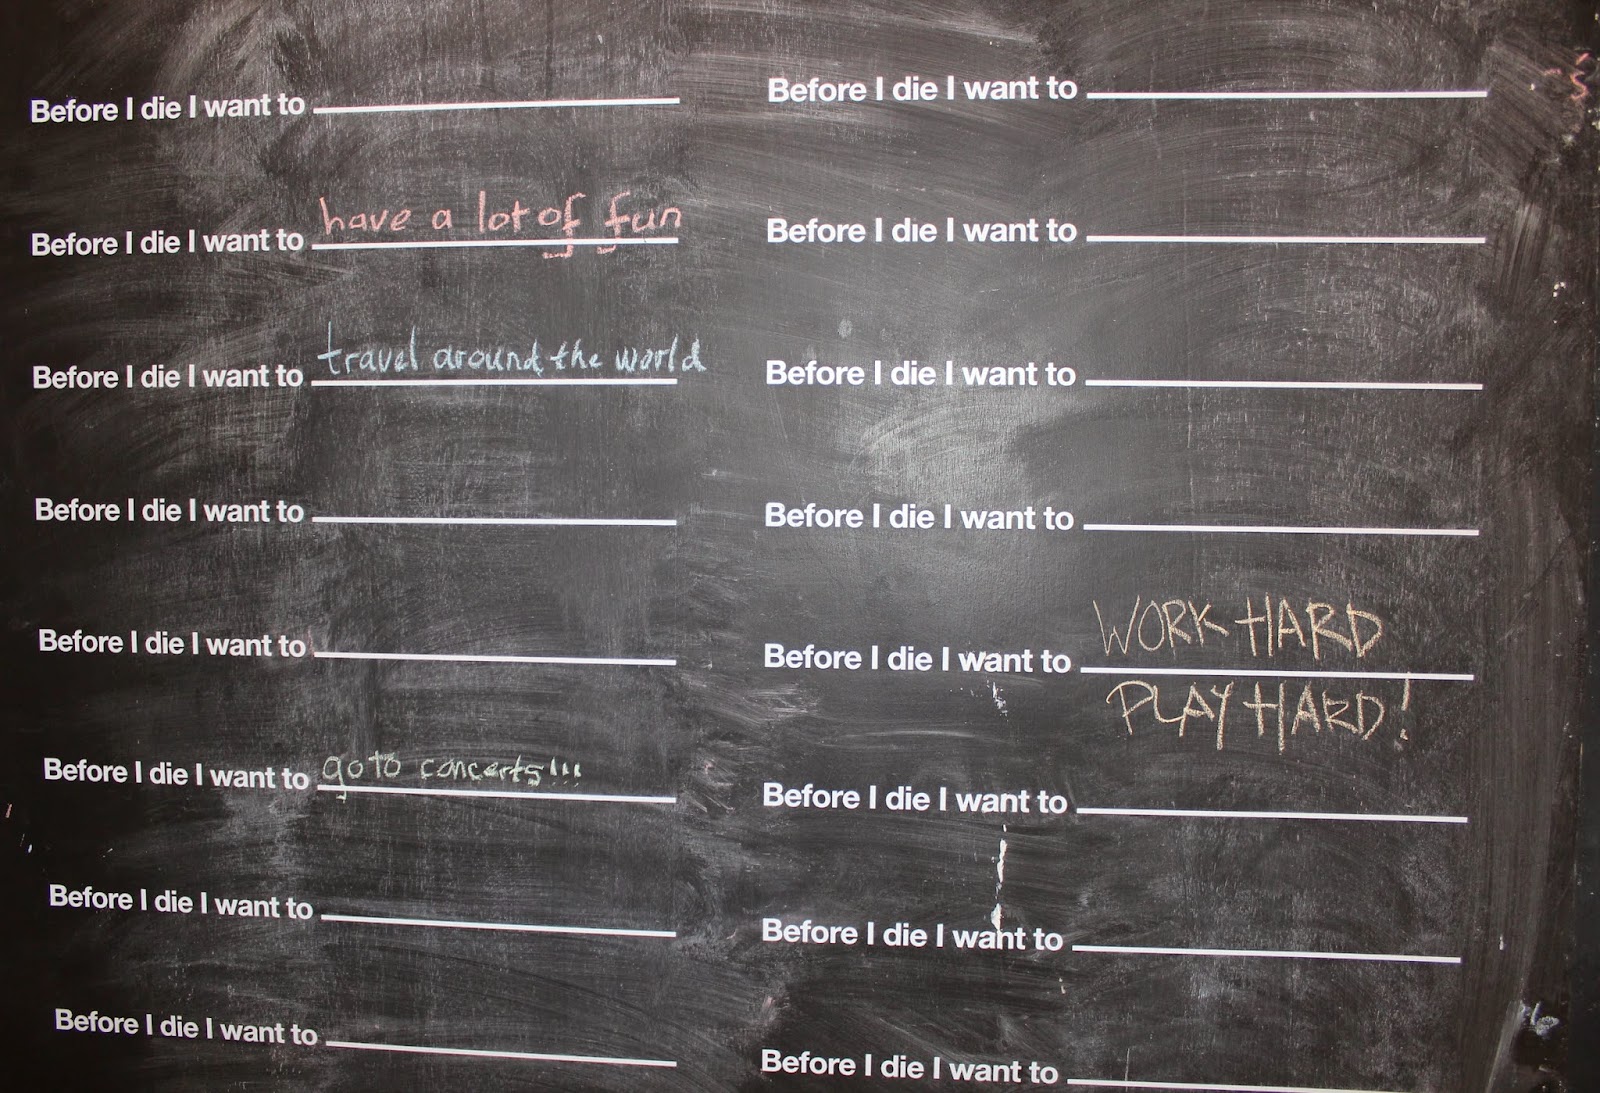 Before I die I want to
Before I die I want to have a lot of fun
Before I die I want to travel around the world
Before I die I want to
Before I die I want to
Before I die I want to go to concerts!!!
Before I die I want to
Before I die I want to
Before I die I want to
Before I die I want to
Before I die I want to
Before I die I want to
Before I die I want to WORK HARD
PLAY HARD!
Before I die I want to
Before I die I want to
Before I die I want to